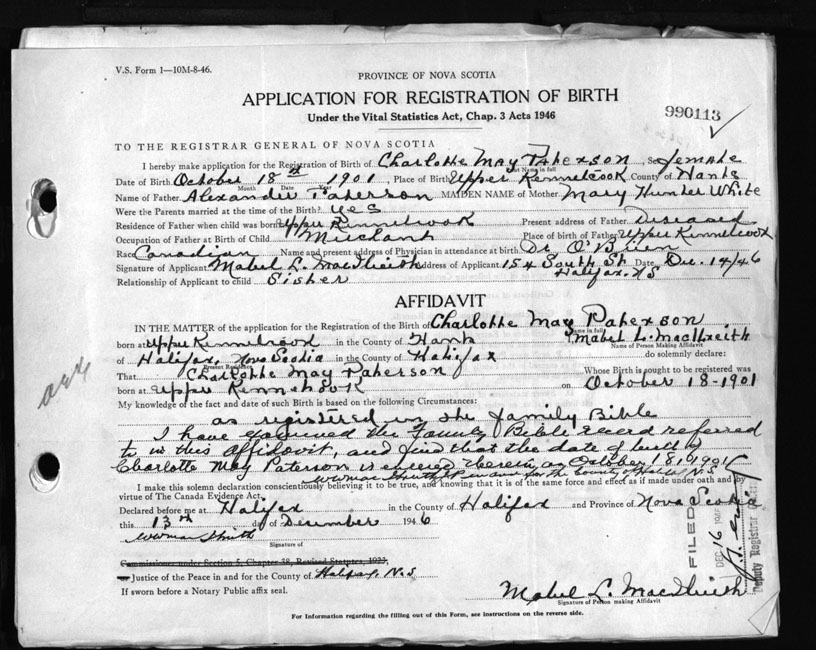 V.S. Form 1—10M-8-46.
PROVINCE OF NOVA SCOTIA
APPLICATION FOR REGISTRATION OF BIRTH
Under the Vital Statistics Act, Chap. 3 Acts 1946
990113
TO THE REGISTRAR GENERAL OF NOVA SCOTIA
I hereby make application for the Registration of Birth of Charlotte May Paterson, Sex female
Name in full
Date of Birth October 18th 1901, Place of Birth Upper Kennetcook County of Hants
Month Date Year
Name of Father Alexander Paterson MAIDEN NAME of Mother Mary Hunter White
Were the Parents married at the time of Birth? yes
Residence of Father when child was born Upper Kennetcook Present address of Father Diseased
Occupation of Father at Birth of Child Merchant Place of birth of Father Upper Kennetcook
Race Canadian Name and present address of Physician in attendance at birth Dr O'Brien
Signature of Applicant Mabel L. MacIlreith Address of Applicant 154 South St Date Dec. 14/46
Halifax, NS
Relationship of Applicant to child Sister
AFFIDAVIT
IN THE MATTER of the application for the Registration of the Birth of Charlotte May Paterson
Name in full
born at Upper Kennetcook in the County of Hants I Mabel L. MacIlreith
Name of Person Making Affidavit
of Halifax, Nova Scotia in the County of Halifax do solemnly declare:
Present Residence
That Charlotte May Paterson Whose Birth is sought to be registered was
born at Upper Kennetcook on October 18-1901
My knowledge of the fact and date of such Birth is based on the following Circumstances:
as registered in the family Bible
I have examined the Family Bible record referred
to in this affidavit, and find that the date of birth of
Charlotte May Paterson is entered therein as October 18, 1901
I make this solemn declaration conscientiously believing it to be true, and knowing that it is of the same force and effect as if made under oath and by
virtue of The Canada Evidence Act.
Declared before me at Halifax in the County of Halifax and Province of Nova Scotia
this 13th day of December 1946
Signature of
Commissioner under Section 5, Chapter 38, Revised Statutes, 1923,
Justice of the Peace in and for the County of Halifax, N.S
If sworn before a Notary Public affix seal.
Mabel L. MacIlreith
Signature of Person making Affidavit
FILED
DEC 16 1946
Deputy Registrar
For Information regarding the filling out of this Form, see instructions on the reverse side.